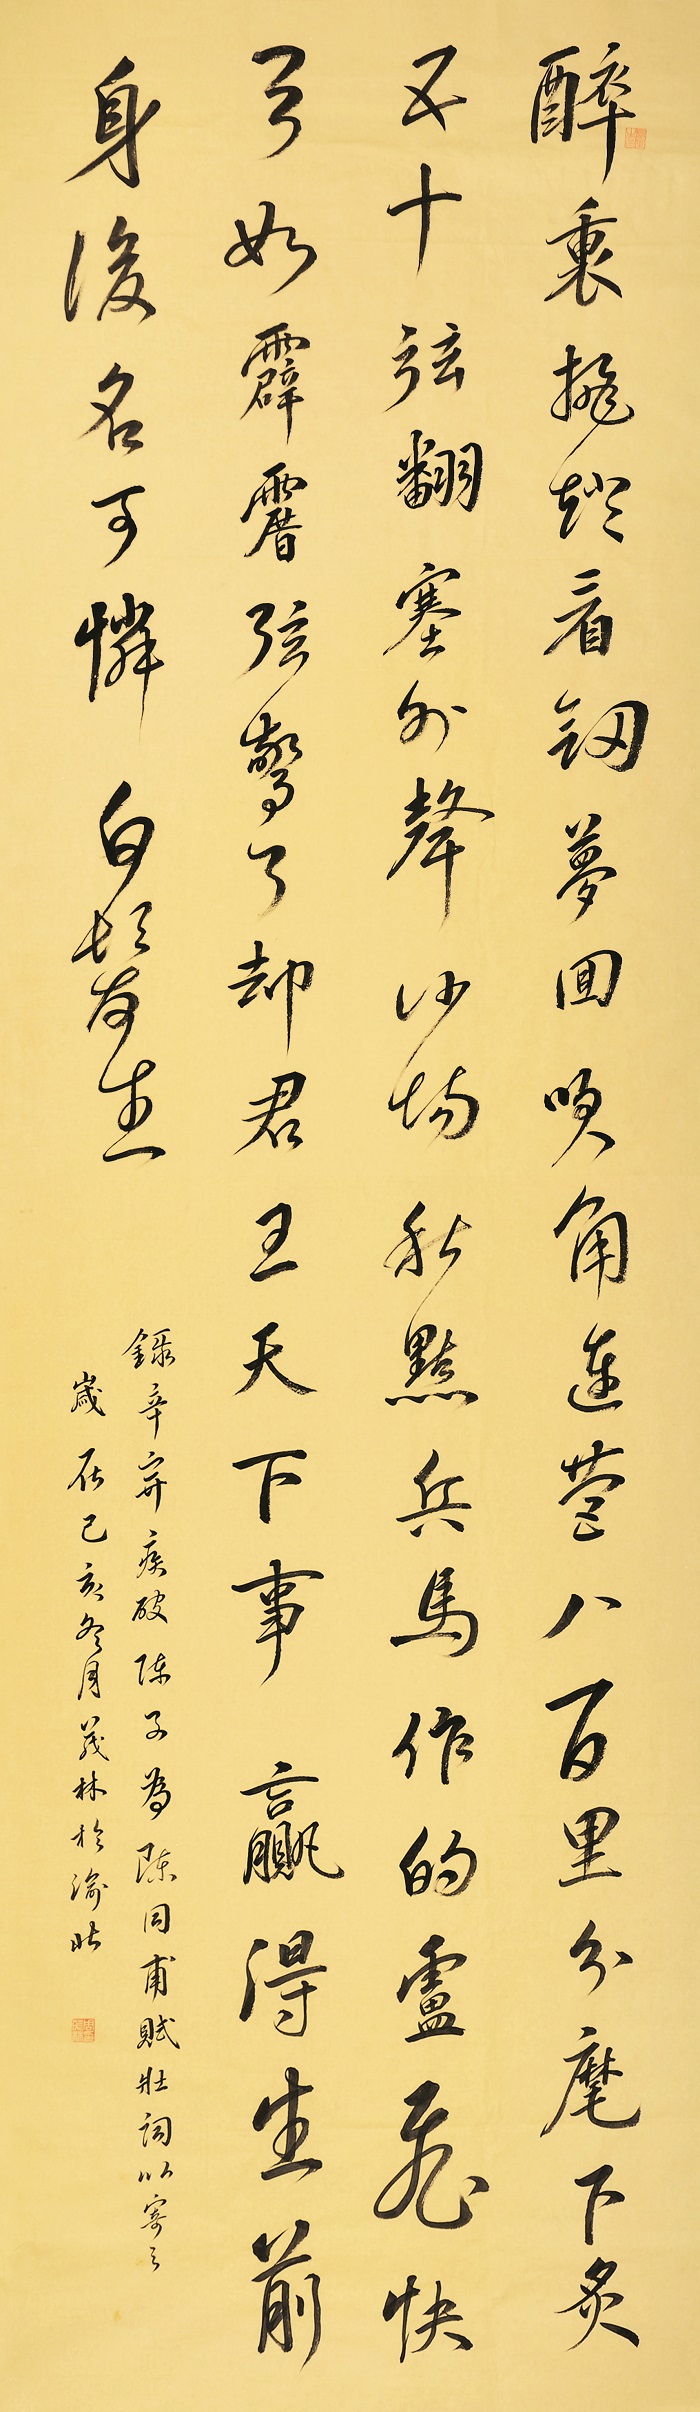 醉裏挑燈看劔夢回吹角連營八百里分麾下炙
五十弦翻塞外聲沙場秋點兵馬作的盧飛快
弓如霹靂弦驚了却君王天下事贏得生前
身後名可憐白髮生
錄辛弃疾破陣子為陳同甫賦壯詞以寄之
歲在己亥冬月義林於渝北